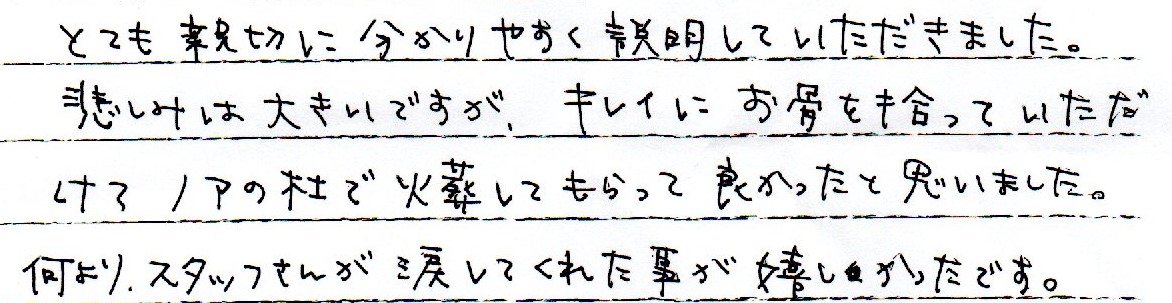 とても親切に分かりやすく説明していただきました。
悲しみは大きいですが、キレイにお骨を拾っていただ
けて ノアの杜で火葬してもらって良かったと思いました。
何より、スタッフさんが涙してくれた事が嬉しかったです。